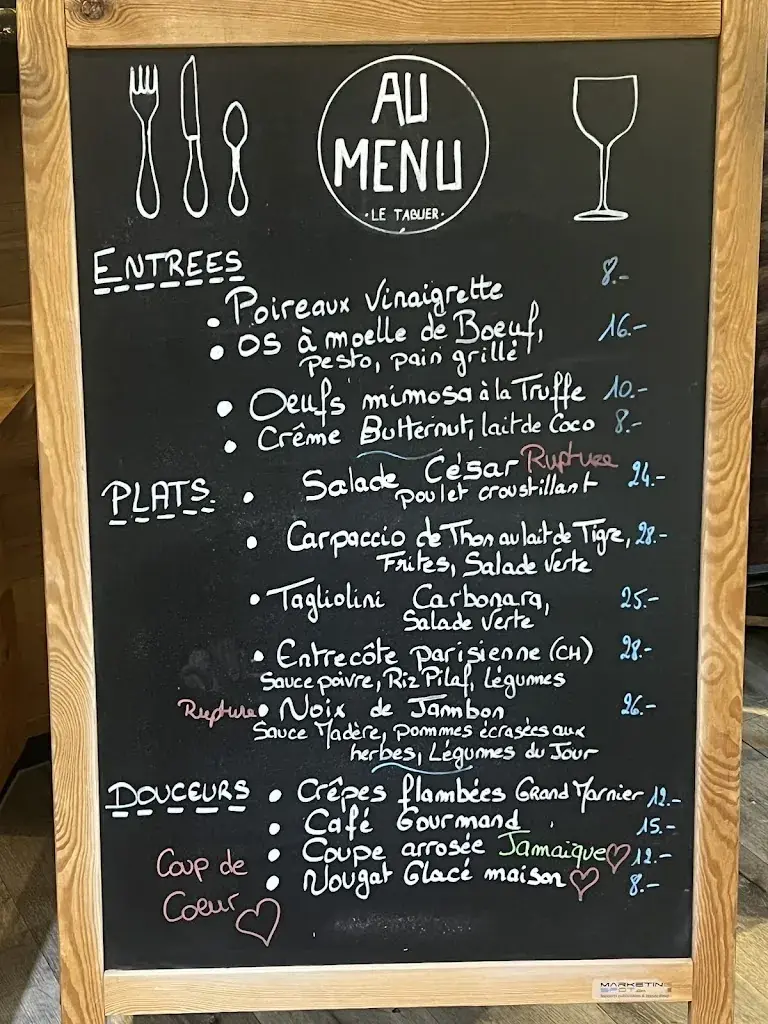 AU
MENU
• LE TABLIER •
ENTREES
• Poireaux Vinaigrette 8.-
• OS à moelle de Boeuf, 16.-
pesto, pain grillé
• Oeufs mimosa à la Truffe 10.-
• Crême Butternut, lait de Coco 8.-
PLATS
• Salade César Rupture 24.-
poulet croustillant
• Carpaccio de Thon au lait de Tigre, 28.-
Frites, Salade Verte
• Tagliolini Carbonara, 25.-
Salade Verte
• Entrecôte parisienne (CH) 28.-
Sauce poivre, Riz Pilaf, Légumes
Rupture • Noix de Jambon 26.-
Sauce Madère, pommes écrasées aux
herbes, Légumes du Jour
DOUCEURS
• Crêpes flambées Grand Marnier 12.-
• Café Gourmand 15.-
• Coupe arrosée Jamaïque ♡ 12.-
• Nougat Glacé maison ♡ 8.-
Coup de
Coeur ♡
MARKETIN